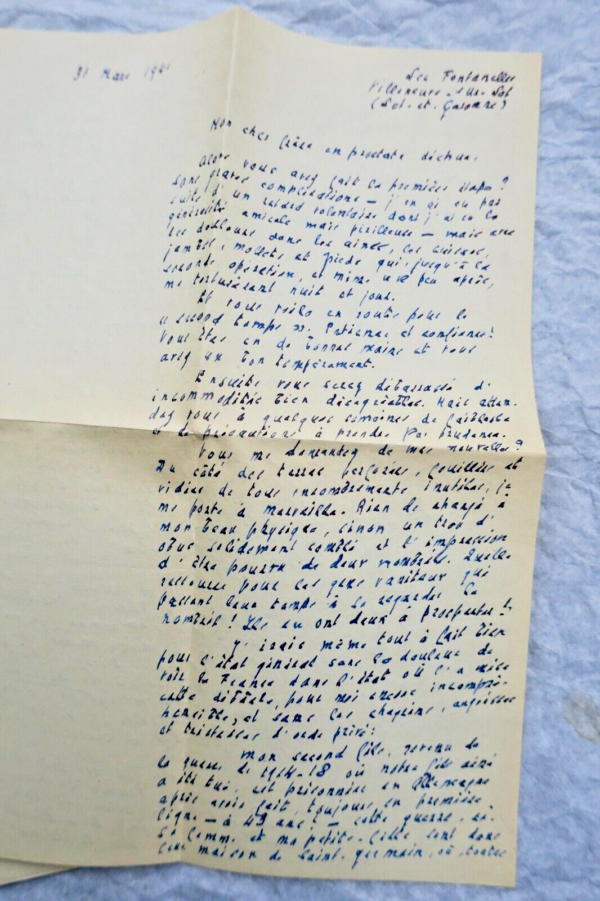 31 Mars 1941
Les Fontanelles
Villeneuve-sur-Lot
(Lot-et-Garonne)
Mon cher frère en prostate déchue,
Alors vous avez fait la première étape ?
Sans graves complications – j'en ai eu par
suite d'un retard volontaire dont j'ai eu la
généralité amicale mais périlleuse – mais avec
des douleurs dans les aines, les cuisses,
jambes, mollets et pieds qui, jusqu'à la
seconde opération, et même un peu après,
me torturèrent nuit et jour.
Et vous voilà en route pour le
« second temps ». Patience et confiance !
Vous êtes en de bonnes mains et vous
avez un bon tempérament.
Ensuite vous serez débarrassé d'
incommodités bien désagréables. Mais atten-
dez vous à quelques semaines de faiblesse
et de précautions à prendre par prudence.
Vous me demandez de mes nouvelles ?
Du côté des terres percées, fouillées et
vidées de tous encombrements inutiles, ça
me porte à merveille. Rien de changé à
mon beau physique, sinon un trou d'
obus solidement comblé et l'impression
d'être pourvu de deux nombrils. Quelle
ressource pour les gens vaniteux qui
passent leur temps à se regarder le
nombril ! Ils en ont deux à prospecter !
J'irais même tout à fait bien
pour l'état général sans la douleur de
voir la France dans l'état où l'a mise
cette défaite, pour moi encore incompré-
hensible, et sans les chagrins, angoisses
et tristesses d'ordre privé :
mon second fils, revenu de
la guerre de 1914-18 où notre fils aîné
a été tué, est prisonnier en Allemagne
après avoir fait, toujours en première
ligne – à 49 ans ! – cette guerre-ci.
Sa femme et ma petite-fille sont dans
leur maison de Saint-Germain, où, toutes